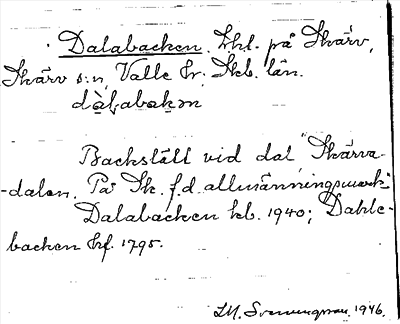 Dalabacken. Lhl. på Skärv,
Skärv s:n, Valle hr, Skb. län.
dàḷabakən
Backställ vid dal "Skärva-
-dalen. På Sk. f.d. allmänningsmark"
Dalabacken kb. 1940; Dahle-
backen hf. 1795.
1946.